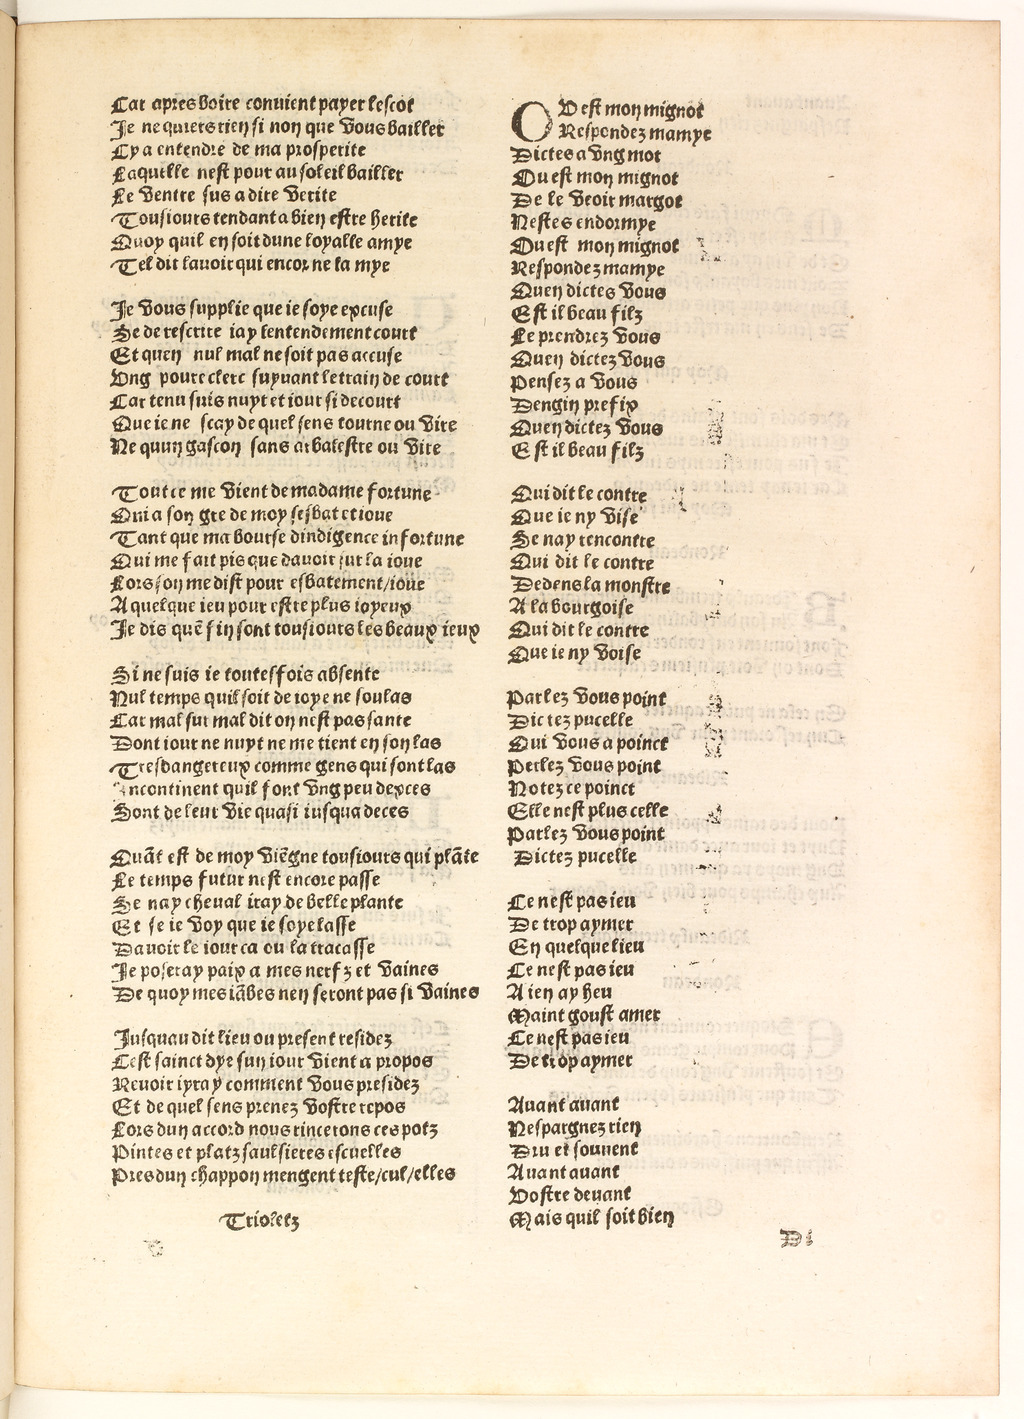 Car apres boire convient payer lescot
Je ne quiers rien si non que vous bailler
Cy a entendre de ma prosperite
Laquelle nest pour au soleil bailler
Le ventre sus a dire verite
Tousiours tendant a bien estre herite
Quoy quil en soit dune loyalle amye
Tel dit lauoir qui encor ne la mye
Je vous supplie que ie soye excuse
Se de rescrire iay lentendement court
Et quen nul mal ne soit pas accuse
Ung poure clerc suyuant le train de court
Car tenu suis nuyt et iour si decourt
Que ie ne scay de quel sens tourne ou vire
Ne quun gascon sans arbalestre ou vire
Tout ce me vient de madame fortune
Qui a son gre de moy sesbat et ioue
Tant que ma bourse dindigence infortune
Qui me fait pis que dauoir sur la ioue
Lors son me dist pour esbatement/ioue
A quelque ieu pour estre plus ioyeux
Je dis quē fin sont tousiours les beaux ieux
Si ne suis ie toutesfois absente
Nul temps quil soit de ioye ne soulas
Car mal sur mal dit on nest pas sante
Dont iour ne nuyt ne me tient en son las
Tresdangereux comme gens qui sont las
Incontinent quil font ung peu dexces
Sont de leur vie quasi iusqua deces
Quāt est de moy viēgne tousiours qui plāte
Le temps futur nest encore passe
Se nay cheual iray de belle plante
Et se ie voy que ie soye lasse
Dauoir le iour ca ou la tracasse
Je poseray paix a mes nerfz et vaines
De quoy mes iābes nen seront pas si vaines
Jusquau dit lieu ou present residez
Cest sainct dye sun iour vient a propos
Reuoir iyray comment vous presidez
Et de quel sens prenez vostre repos
Lors dun accord nous rincerons ces potz
Pintes et platz saulsieres escuelles
Pres dun chappon mengent teste/cul/elles
Trioletz
OV est mon mignot
Respondez mamye
Dictes a vng mot
Ou est mon mignot
De le veoir margot
Nestes endormye
Ou est mon mignot
Respondez mamye
Quen dictes vous
Est il beau filz
Le prendrez vous
Quen dictez vous
Pensez a vous
Dengin prefix
Quen dictez vous
Est il beau filz
Qui dit le contre
Que ie ny vise
Se nay rencontre
Qui dit le contre
Dedens la monstre
A la bourgoise
Qui dit le contre
Que ie ny voise
Parlez vous point
Dictez pucelle
Qui vous a poinct
Perlez vous point
Notez ce poinct
Elle nest plus celle
Parlez vous point
Dictez pucelle
Ce nest pas ieu
De trop aymer
En quelque lieu
Ce nest pas ieu
A ien ay heu
Maint goust amer
Ce nest pas ieu
De trop aymer
Auant auant
Nespargnez rien
Dru et souuent
Auant auant
Vostre deuant
Mais quil soit bien
D i